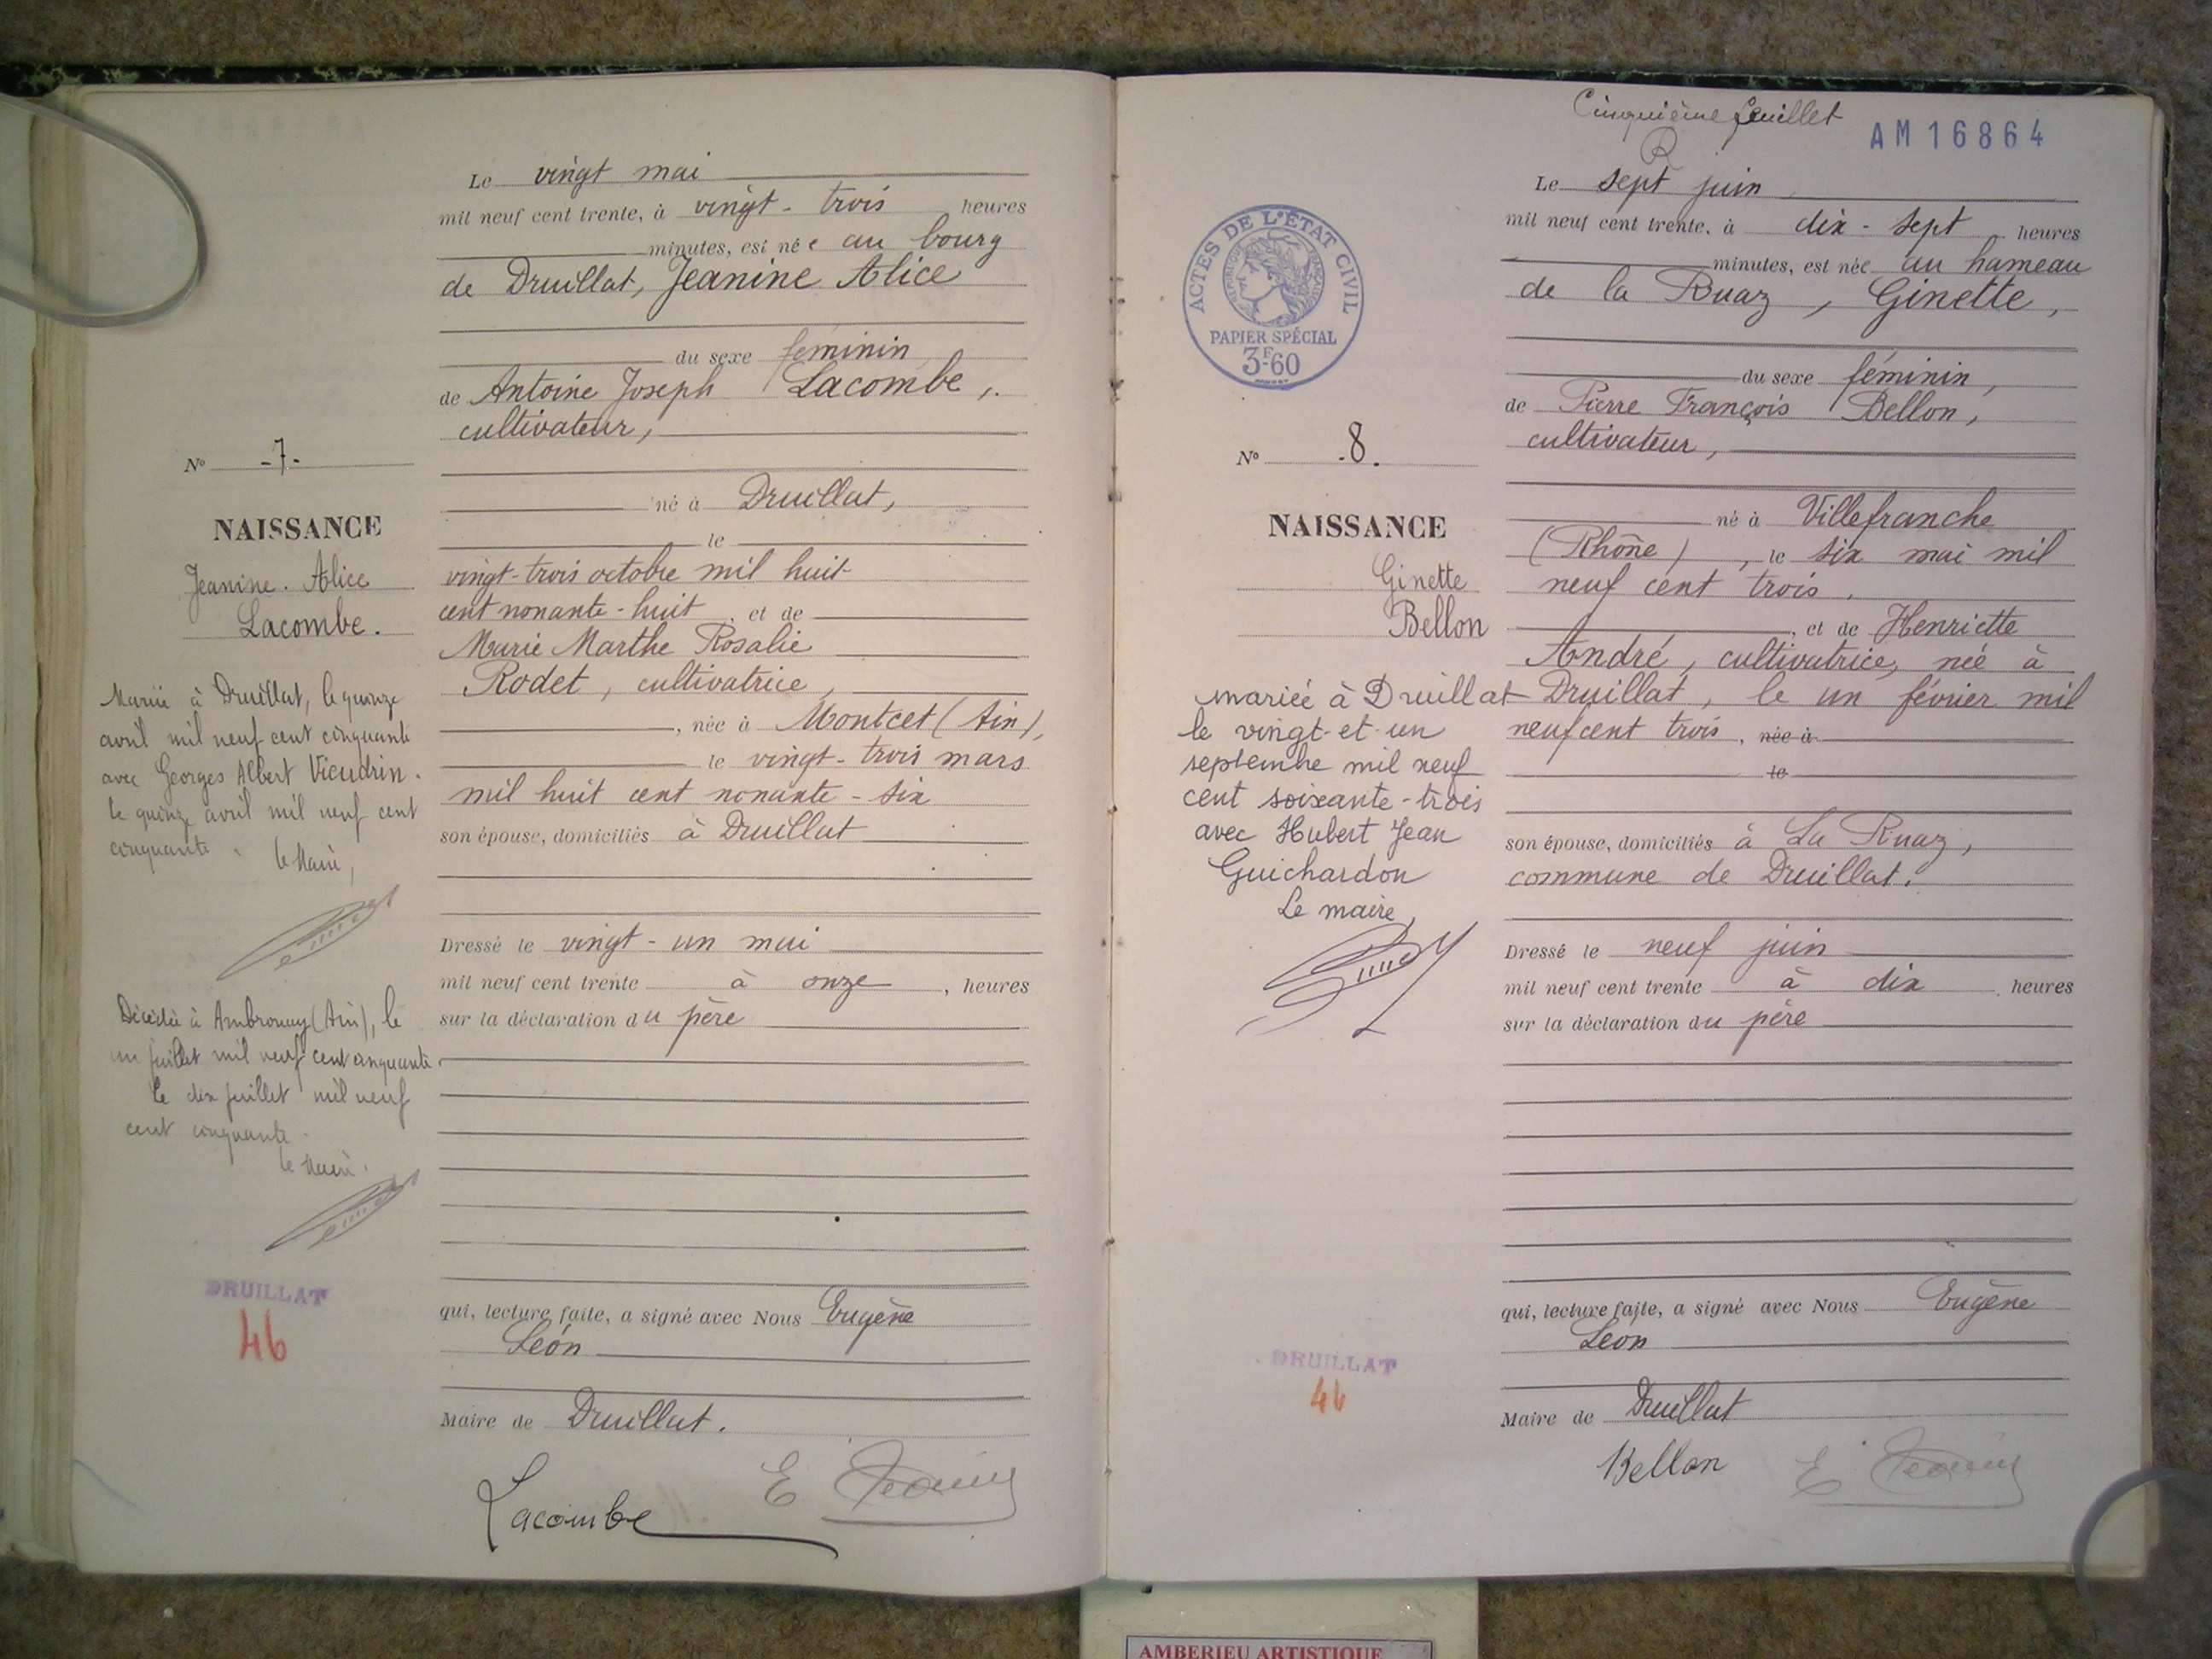 Le vingt mai
mil neuf cent trente, à vingt-trois heures
minutes, est née au bourg
de Druillat, Jeanine Alice
du sexe féminin
de Antoine Joseph Lacombe,
cultivateur,
né à Druillat,
le
vingt-trois octobre mil huit
cent nonante-huit, et de
Marie Marthe Rosalie
Rodet, cultivatrice,
, née à Montcet (Ain),
le vingt-trois mars
mil huit cent nonante-six
son épouse, domiciliés à Druillat
Dressé le vingt-un mai
mil neuf cent trente à onze, heures
sur la déclaration du père
qui, lecture faite, a signé avec Nous Eugène
Léon
Maire de Druillat.
Lacombe
N° -7-
NAISSANCE
Jeanine. Alice
Lacombe.
Mariée à Druillat, le quinze
avril mil neuf cent cinquante
avec Georges Albert
le quinze avril mil neuf cent
cinquante.
Le Maire,
Décédée à Ambronay (Ain), le
un juillet mil neuf cent cinquante
Le dix juillet mil neuf
cent cinquante.
Le Maire.
DRUILLAT
46
Cinquième feuillet
AM16864
Le sept juin,
mil neuf cent trente, à dix-sept heures
minutes, est née au hameau
de la Ruaz, Ginette,
du sexe féminin,
de Pierre François Bellon,
cultivateur,
né à Villefranche
(Rhône), le six mai mil
neuf cent trois.
, et de Henriette
André, cultivatrice, née à
Druillat, le un février mil
neuf cent trois, née à
le
son épouse, domiciliés à La Ruaz,
commune de Druillat.
Dressé le neuf juin
mil neuf cent trente à dix heures
sur la déclaration du père
qui, lecture faite, a signé avec Nous Eugène
Leon
Maire de Druillat
Bellon
ACTES DE L'ÉTAT CIVIL
RÉPUBLIQUE FRANÇAISE
PAPIER SPÉCIAL
3F60
N° .8.
NAISSANCE
Ginette
Bellon
mariée à Druillat
le vingt-et-un
septembre mil neuf
cent soixante-trois
avec Hubert Jean
Guichardon
Le maire,
DRUILLAT
46
AMBERIEU ARTISTIQUE